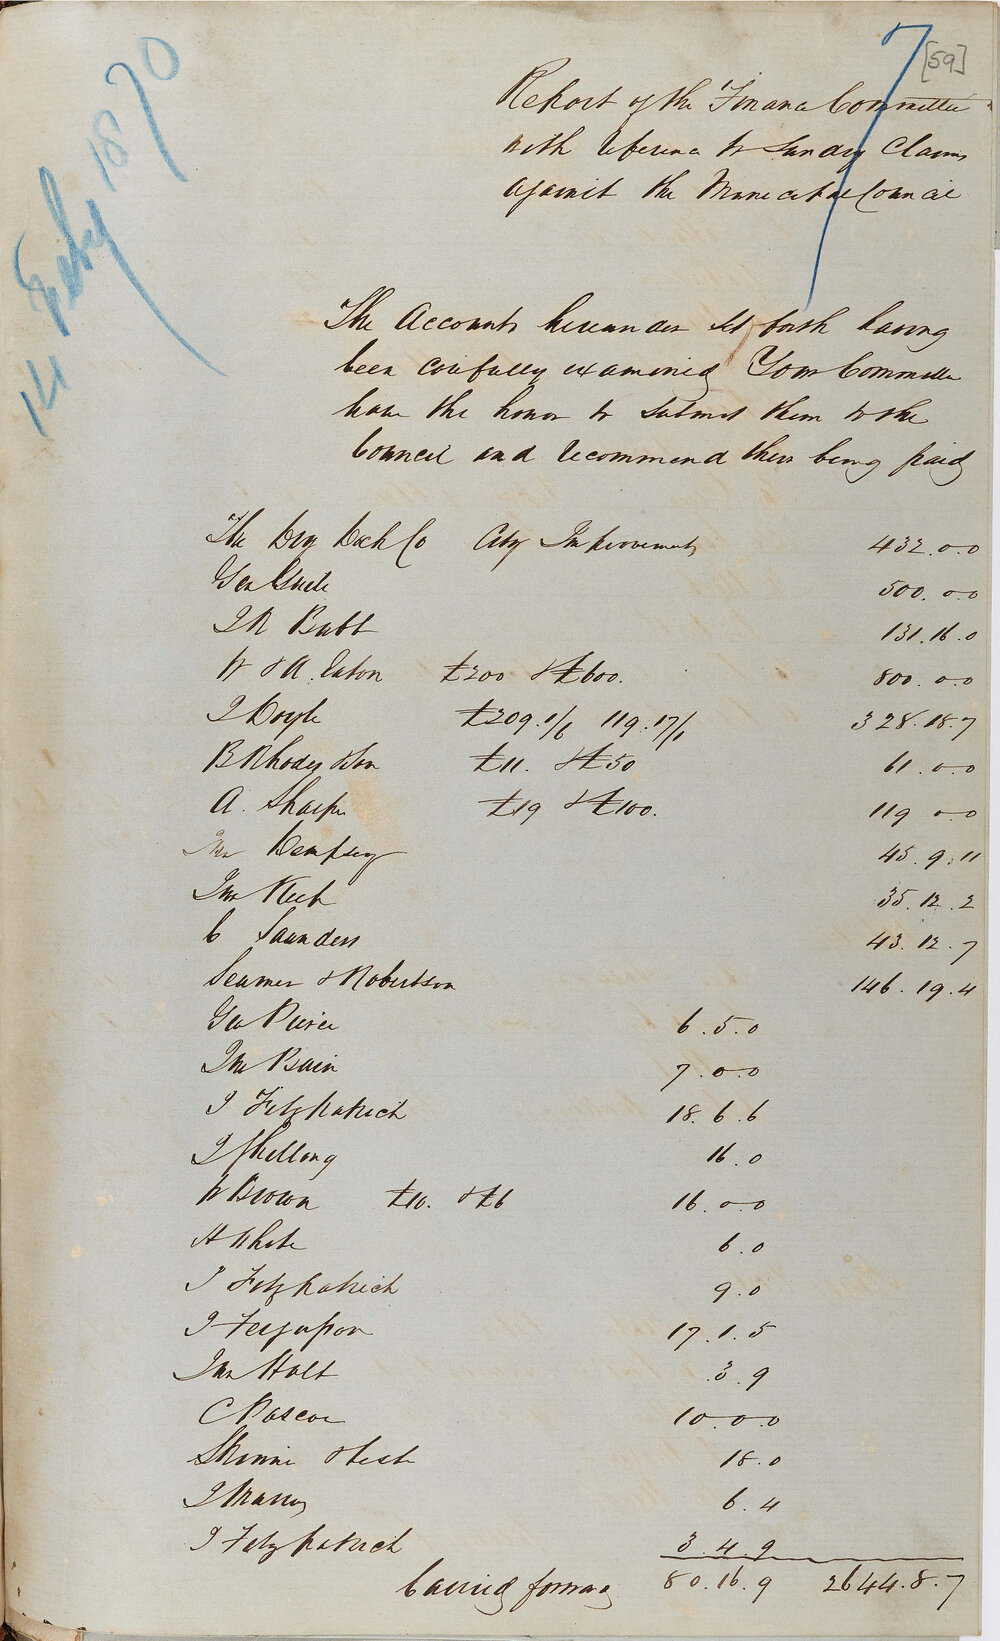 7
[59]
14 Feby 1870
Report of the Finance Committee
with reference to Sundry Claims
against the Municipal Council
The Accounts hereunder set forth having
been carefully examined Your Committee
have the honor to submit them to the
Council and recommend their being paid
The Dry Dock Co City Improvements 432.0.0
Geo 500.0.0
J R Babb 131.16.0
W & A. Eaton £200 & £600. 800.0.0
J Doyle £209.1/6 119.17/1 328.18.7
B Rhodes & Son £11. & £50 61.0.0
A. Sharpe £19 & £100. 119 0.0
Jno Dempsey 45.9.11
Jno Keeb 35.12.2
C Saunders 43.12.7
Seamer & Robertson 146.19.4
Geo Peirce 6.5.0
Jno Bain 7.0.0
J Fitzpatrick 18.6.6
J Shelling 16.0
W Brown £10. & £6 16.0.0
H White 6.0
J Fitzpatrick 9.0
J Ferguson 17.1.5
Jno Holt .3.9
C Pascoe 10.0.0
Skinner & 18.0
J 6.4
J Fitzpatrick 3.4.9
Carried forward 80.16.9 2644.8.7